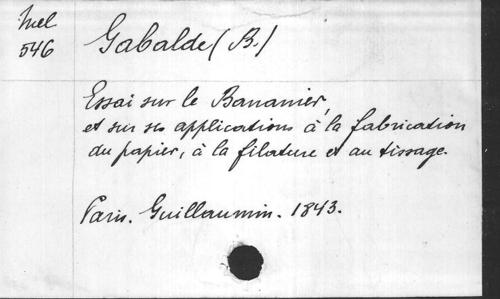 Mel
546
Gabalde (B.)
Essai sur le Bananier,
et sur ses applications à la fabrication
du papier, à la filature et au tissage.
Paris. Guillaumin. 1843.